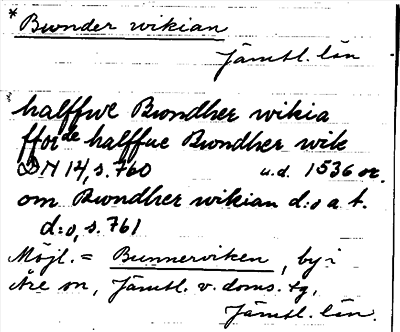 * Bwnder wikian
Jämtl. län
* halffwe Bwndher wikia
ffor de halffue Bwndher wik
DN 14, s. 760 u.d. 1536 or.
om Bwndher wikian d:o a t.
d:o, s. 761
Möjl. = Bunnerviken, by i
Åre sn, Jämtl. v. doms. tg,
Jämtl. län.